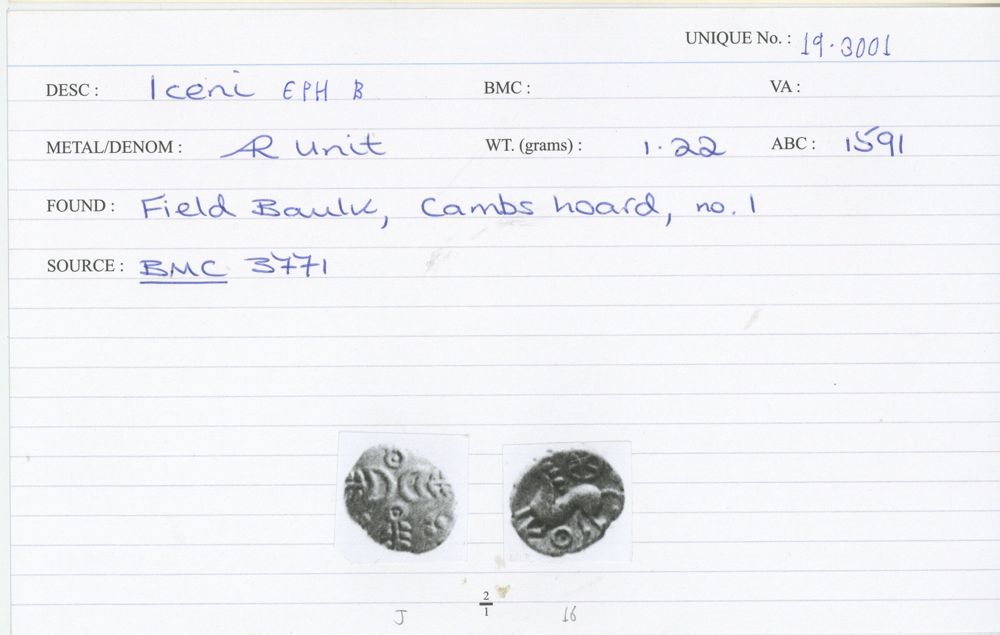 UNIQUE No. : 19.3001
DESC : Iceni EPH B BMC : VA :
METAL/DENOM : AR Unit WT. (grams) : 1.22 ABC : 1591
FOUND : Field Baulk, Cambs hoard, no. 1
SOURCE : BMC 3771
2
J 1 16